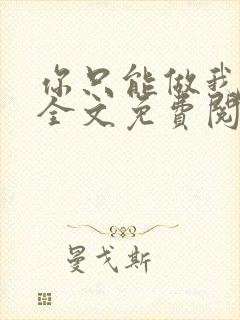 你只能做我
全文免费阅
曼戈斯